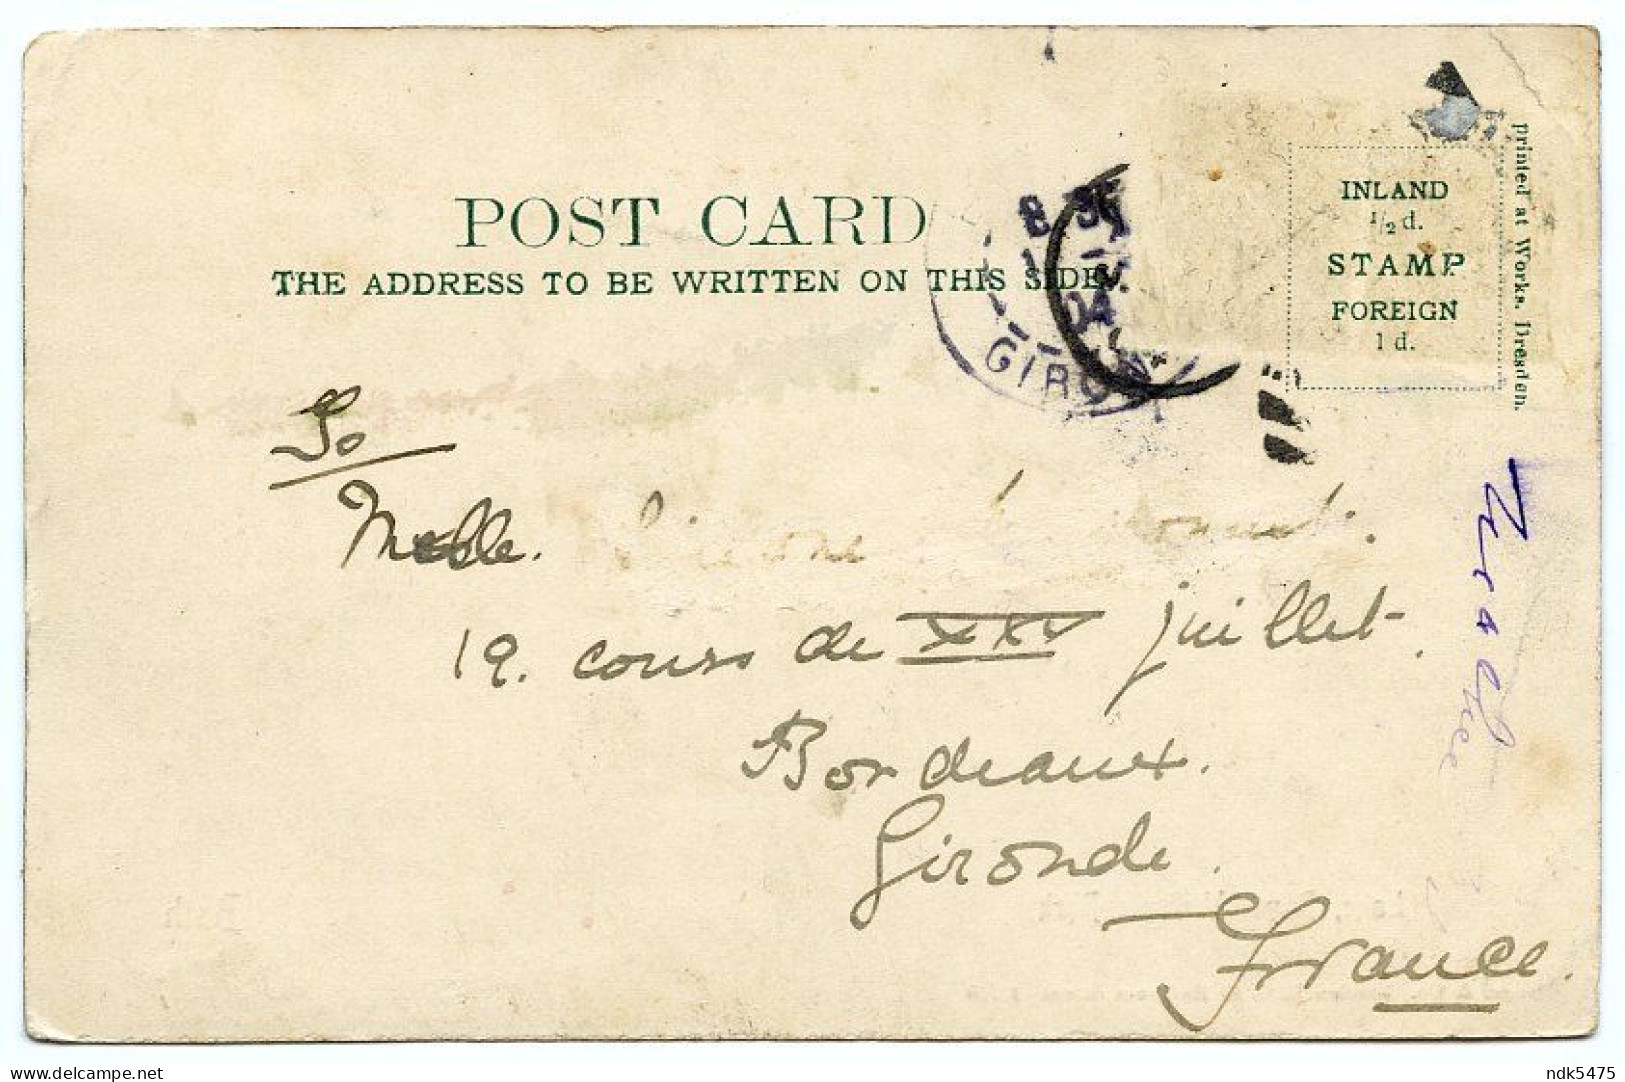 POST CARD
THE ADDRESS TO BE WRITTEN ON THIS SIDE.
INLAND
½ d.
STAMP
FOREIGN
1 d.
printed at Works, Dresden.
8 35
1
04
GIRON
To
Melle.
19. cours de XXX juillet.
Bordeaux.
Gironde.
France.
delcampe.net
ndk5475